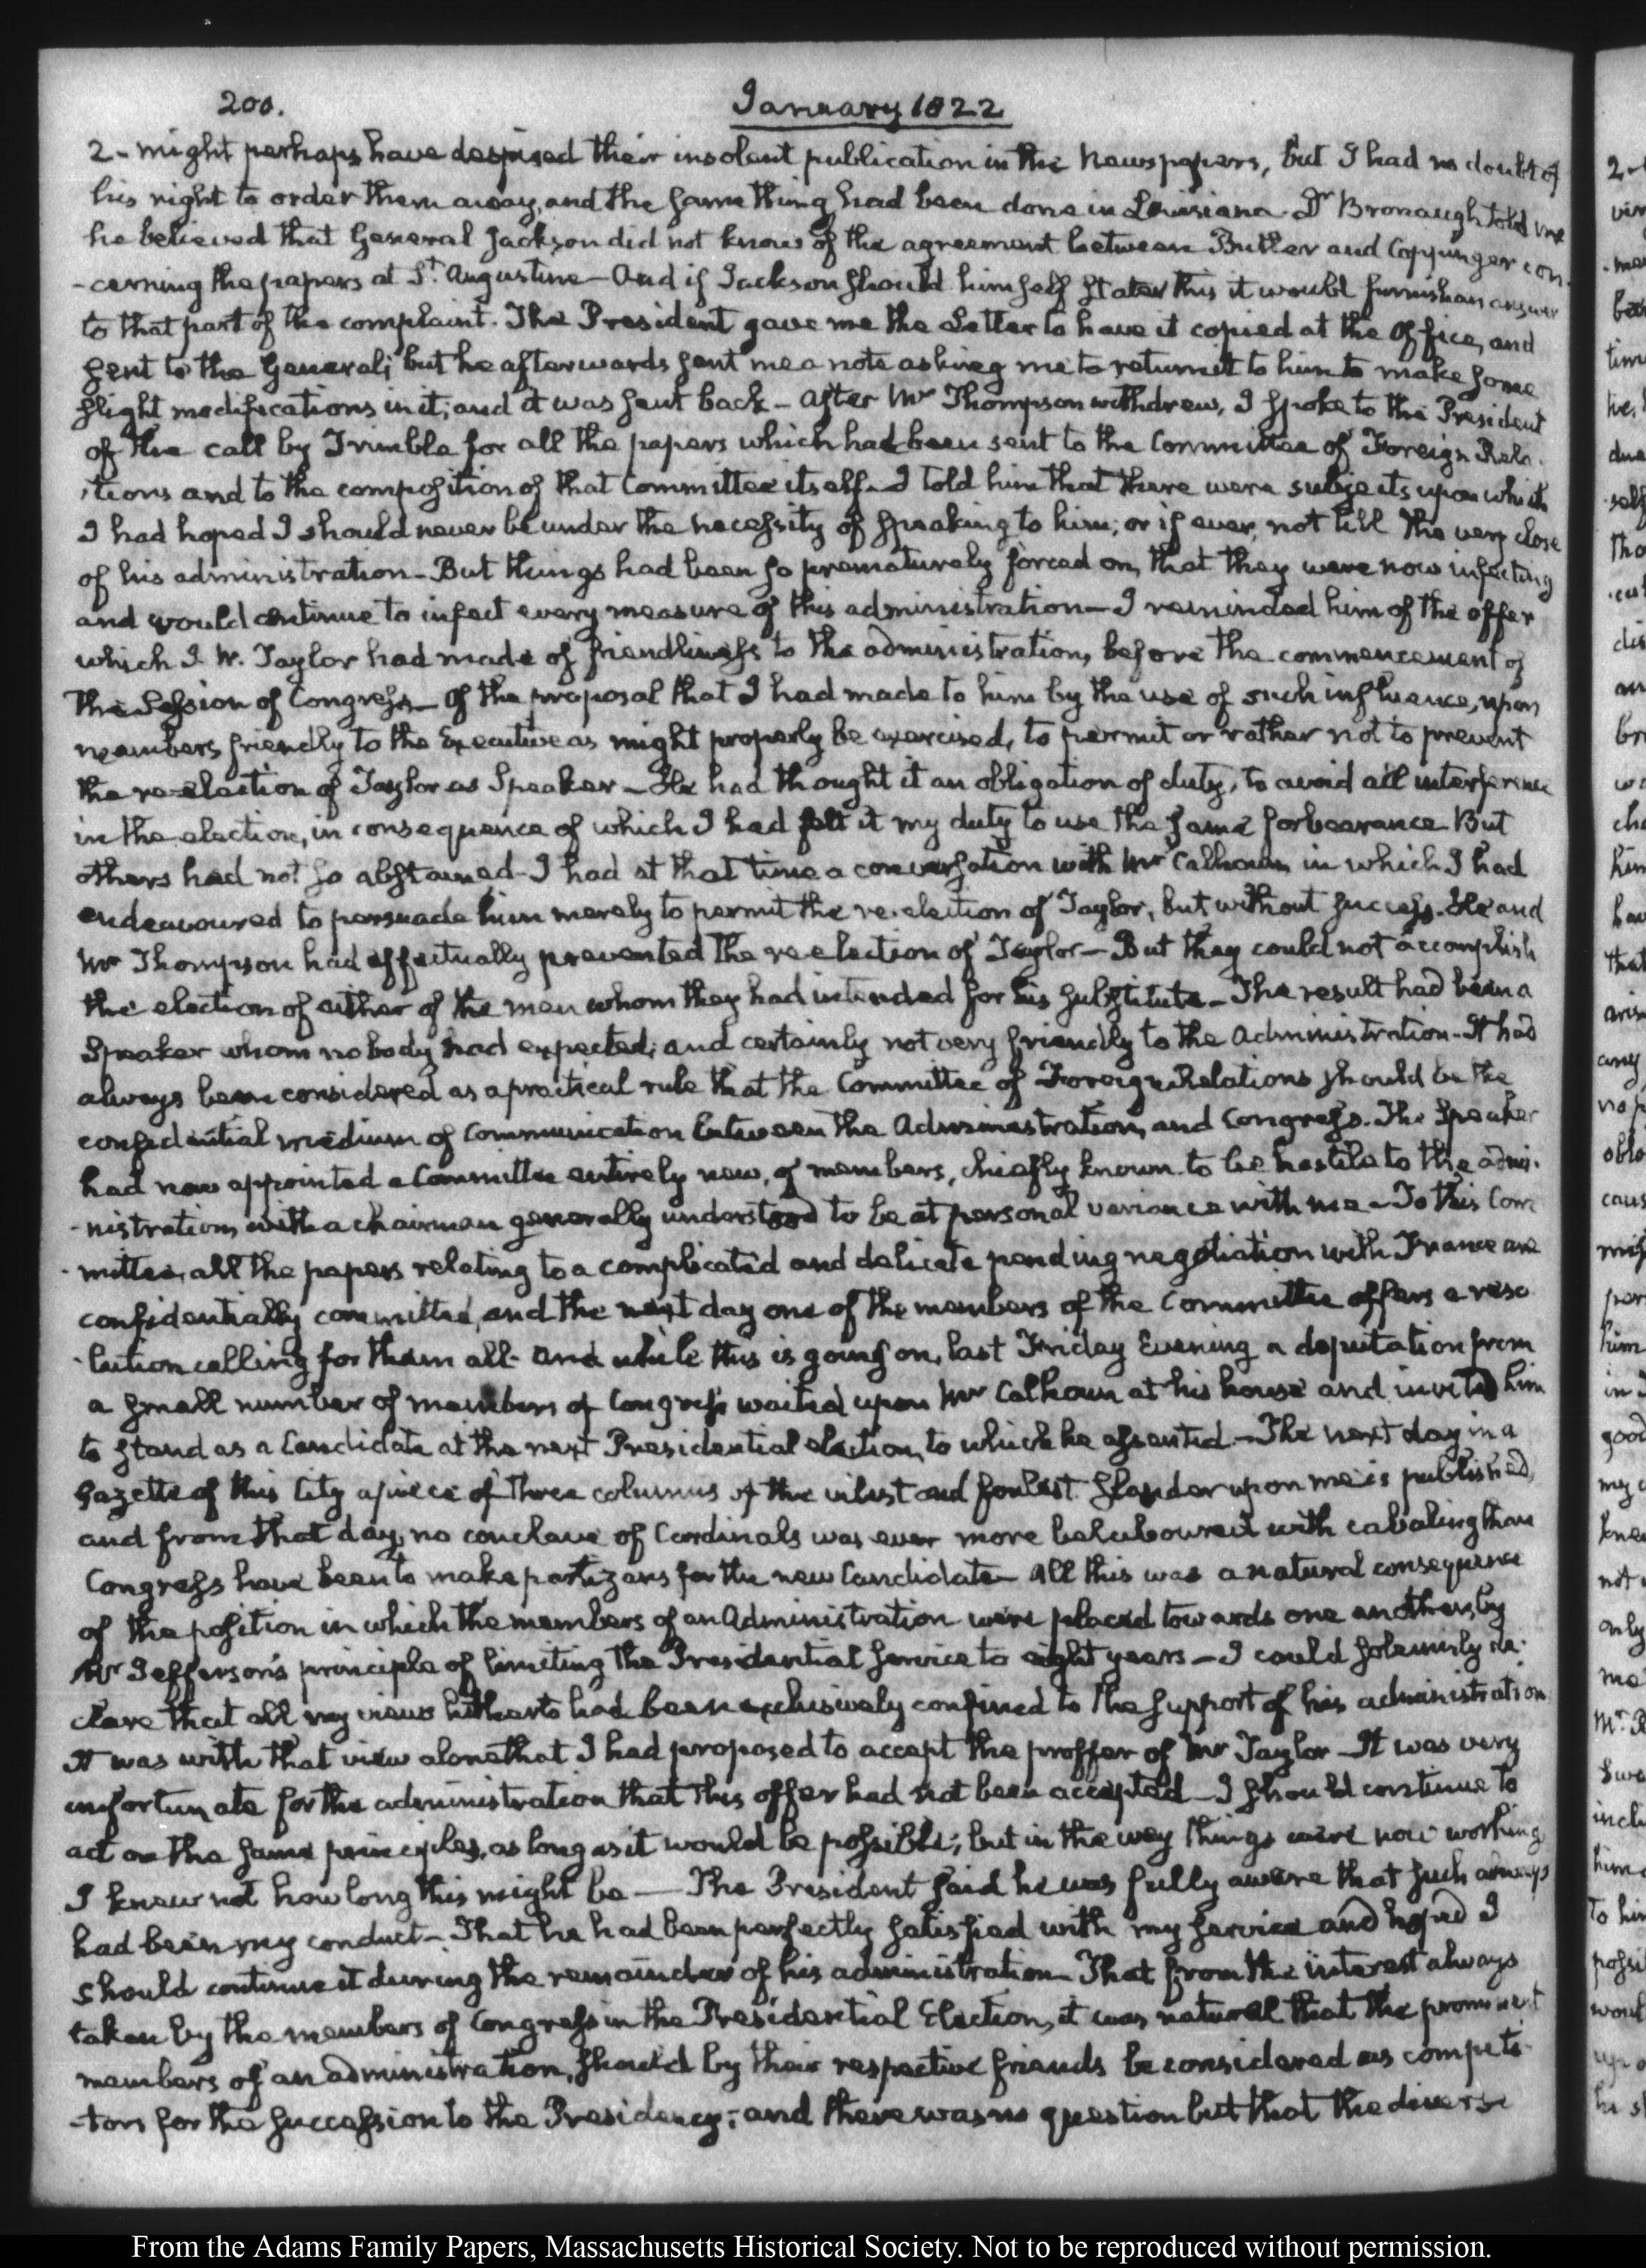 200. January 1822
2- might perhaps have despised their insolent publication in the Newspapers, but I had no doubt of
his right to order them away, and the same thing had been done in Louisiana. Dr Bronaugh told me
he believed that General Jackson did not know of the agreement between Butler and Coppinger con-
-cerning the papers at St. Augustine- And if Jackson should himself state this it would furnish an answer
to that part of the complaint. The President gave me the Letter to have it copied at the Office, and
sent to the General; but he afterwards sent me a note asking me to return it to him to make some
slight modifications in it; and it was sent back- After Mr Thompson withdrew, I spoke to the President
of the call by Trimble for all the papers which had been sent to the Committee of Foreign Rela-
-tions and to the composition of that Committee itself- I told him that there were subjects upon which
I had hoped I should never be under the necessity of speaking to him; or if ever, not till the very close
of his administration- But things had been so prematurely forced on, that they were now infecting
and would continue to infect every measure of this administration- I reminded him of the offer
which J. W. Taylor had made of friendliness to the administration, before the commencement of
the Session of Congress- Of the proposal that I had made to him by the use of such influence, upon
members friendly to the Executive as might properly be exercised, to permit or rather not to prevent
the re-election of Taylor as Speaker- He had thought it an obligation of duty, to avoid all interference
in the election, in consequence of which I had felt it my duty to use the same forbearance. But
others had not so abstained- I had at that time a conversation with Mr Calhoun in which I had
endeavoured to persuade him merely to permit the re-election of Taylor, but without success. He and
Mr Thompson had effectually prevented the re-election of Taylor- But they could not accomplish
the election of either of the men whom they had intended for his substitute- The result had been a
Speaker whom nobody had expected; and certainly not very friendly to the Administration- It had
always been considered as a practical rule that the Committee of Foreign Relations should be the
confidential medium of communication between the Administration, and Congress. The Speaker
had now appointed a Committee entirely new, of members, chiefly known to be hostile to the admi-
-nistration, with a chairman generally understood to be at personal variance with me- To this Com-
-mittee, all the papers relating to a complicated and delicate pending negotiation with France are
confidentially committed, and the next day one of the members of the Committee offers a reso-
-lution calling for them all- and while this is going on, last Friday Evening a deputation from
a small number of members of Congress waited upon Mr Calhoun at his house and invited him
to stand as a Candidate at the next Presidential election, to which he assented- The next day in a
Gazette of this City a piece of three columns of the vilest and foulest slander upon me is published,
and from that day, no conclave of Cardinals was ever more belaboured with cabaling than
Congress have been to make partizans for the new Candidate- All this was a natural consequence
of the position in which the members of an Administration were placed towards one another, by
Mr Jefferson's principle of limiting the Presidential service to eight years- I could solemnly de-
clare that all my views hitherto had been exclusively confined to the support of his administration
It was with that view alone that I had proposed to accept the proffer of Mr Taylor- It was very
unfortunate for the administration that this offer had not been accepted- I should continue to
act on the same principles, as long as it would be possible; but in the way things were now working
I knew not how long this might be- The President said he was fully aware that such always
had been my conduct- That he had been perfectly satisfied with my service and hoped I
should continue it during the remainder of his administration- That from the interest always
taken by the members of Congress in the Presidential Election, it was natural that the prominent
members of an administration, should by their respective friends be considered as competi-
-tors for the succession to the Presidency; and there was no question but that the diverse
From the Adams Family Papers, Massachusetts Historical Society. Not to be reproduced without permission.